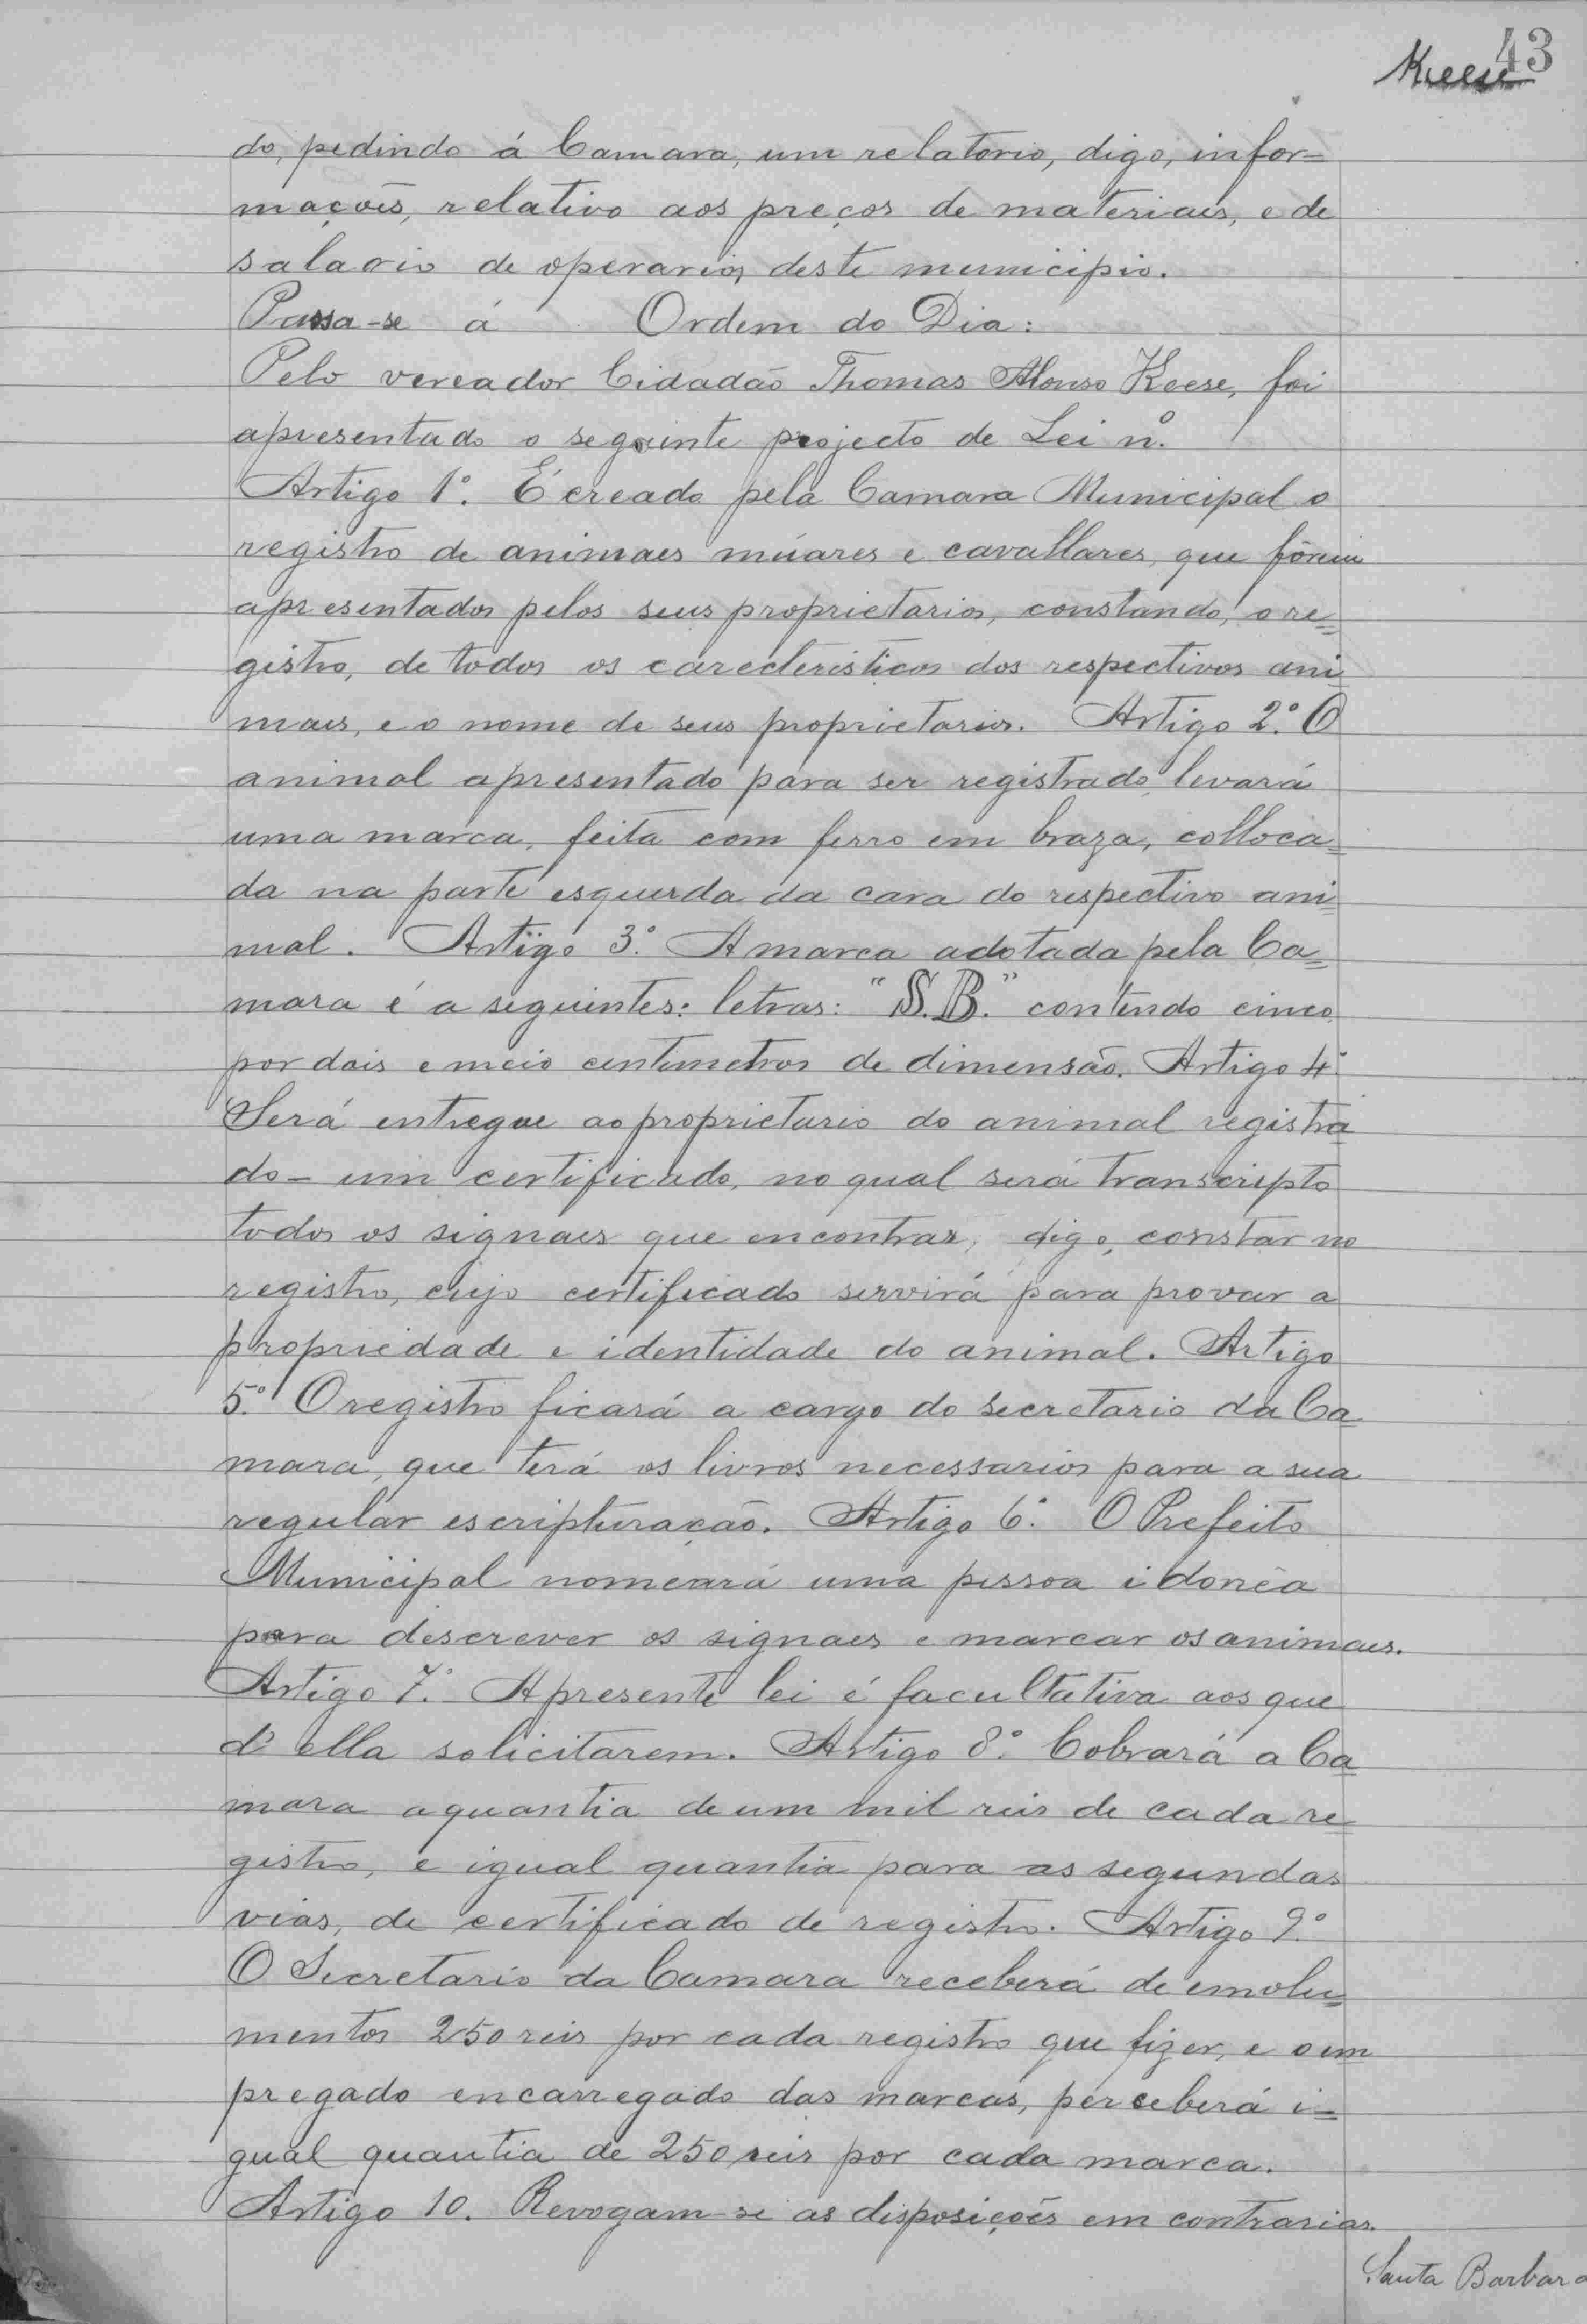 43
Keese
do, pedindo á Camara, um relatorio, digo, infor=
mações, relativo aos preços de materiaes, e de
salario de operarios deste municipio.
Passa-se á Ordem do Dia:
Pelo vereador Cidadão Thomas Alonso Keese, foi
apresentado o seguinte projecto de Lei nº.
Artigo 1º. É creado pela Camara Municipal o
registro de animaes múares e cavallares, que fôrem
apresentados pelos seus proprietarios, constando, o re=
gistro, de todos os carecteristicos dos respectivos ani=
maes, e o nome de seus proprietarios. Artigo 2º. O
animal apresentado para ser registrado, levará
uma marca, feita com ferro em braza, colloca=
da na parte esquerda da cara do respectivo ani=
mal. Artigo 3º. A marca adotada pela Ca=
mara é a seguintes: letras: "S.B." contendo cinco
por dois e meio centimetros de dimensão. Artigo 4º.
Será entregue ao proprietario do animal registra=
do - um certificado, no qual será transcripto
todos os signaes que encontrar, digo, constar no
registro, cujo certificado servirá para provar a
propriedade e identidade do animal. Artigo
5º. O registro ficará a cargo do secretario da Ca=
mara, que terá os livros necessarios para a sua
regular escripturação. Artigo 6º. O Prefeito
Municipal nomeará uma pessoa idonea
para descrever os signaes e marcar os animaes.
Artigo 7º. A presente lei é facultativa aos que
d'ella solicitarem. Artigo 8º. Cobrará a Ca=
mara a quantia de um mil reis de cada re=
gistro, e igual quantia para as segundas
vias, de certificado de registro. Artigo 9º.
O Secretario da Camara receberá de emolu=
mentos 250 reis por cada registro que fizer, e o em
pregado encarregado das marcas, perceberá i=
gual quantia de 250 reis por cada marca.
Artigo 10. Revogam-se as disposições em contrarias.
Santa Barbara